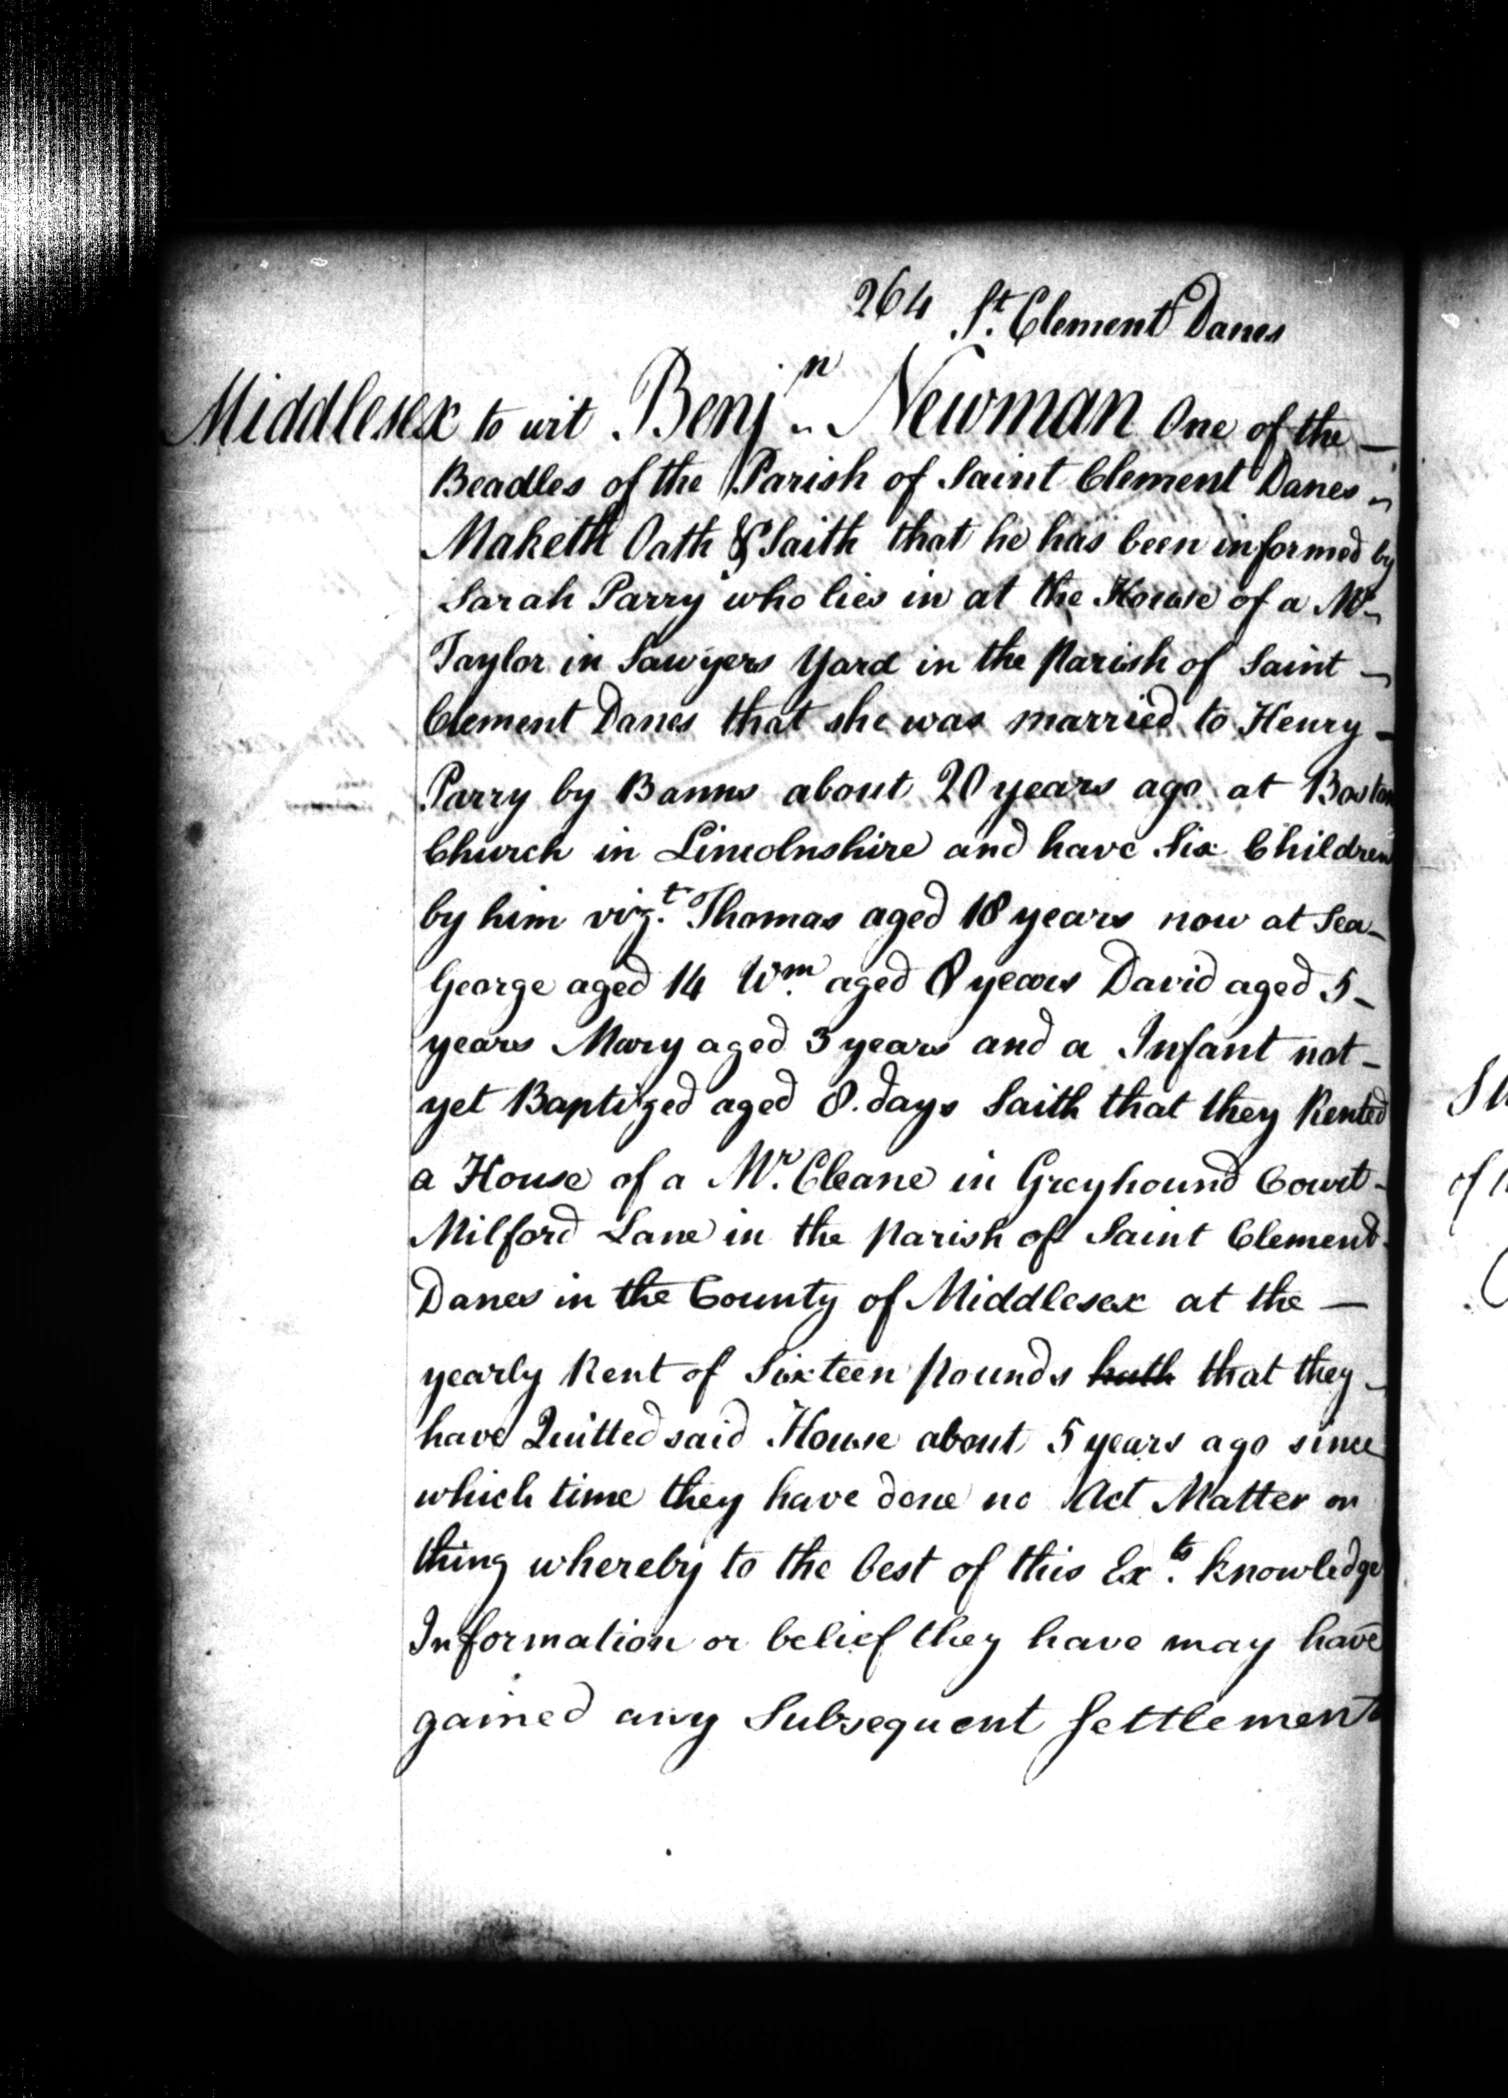 264 St. Clement Danes
Middlesex to wit Benjn. Newman One of the —
Beadles of the Parish of Saint Clement Danes
Maketh Oath & Saith that he has been informed by
Sarah Parry who lies in at the House of a Mr.
Taylor in Sawyers Yard in the Parish of Saint
Clement Danes that she was married to Henry —
Parry by Banns about 20 years ago at Boston
Church in Lincolnshire and have Six Children
by him vizt. Thomas aged 18 years now at Sea —
George aged 14 Wm. aged 8 years David aged 5 —
years Mary aged 3 years and a Infant not —
yet Baptized aged 8. days Saith that they Rented
a House of a Mr. Cleane in Greyhound Court —
Milford Lane in the Parish of Saint Clement
Danes in the County of Middlesex at the —
yearly Rent of Sixteen Pounds hath that they —
have Quitted said House about 5 years ago since
which time they have done no Act Matter or
thing whereby to the best of this Exts. knowledge
Information or belief they have may have
gained any Subsequent Settlement
of